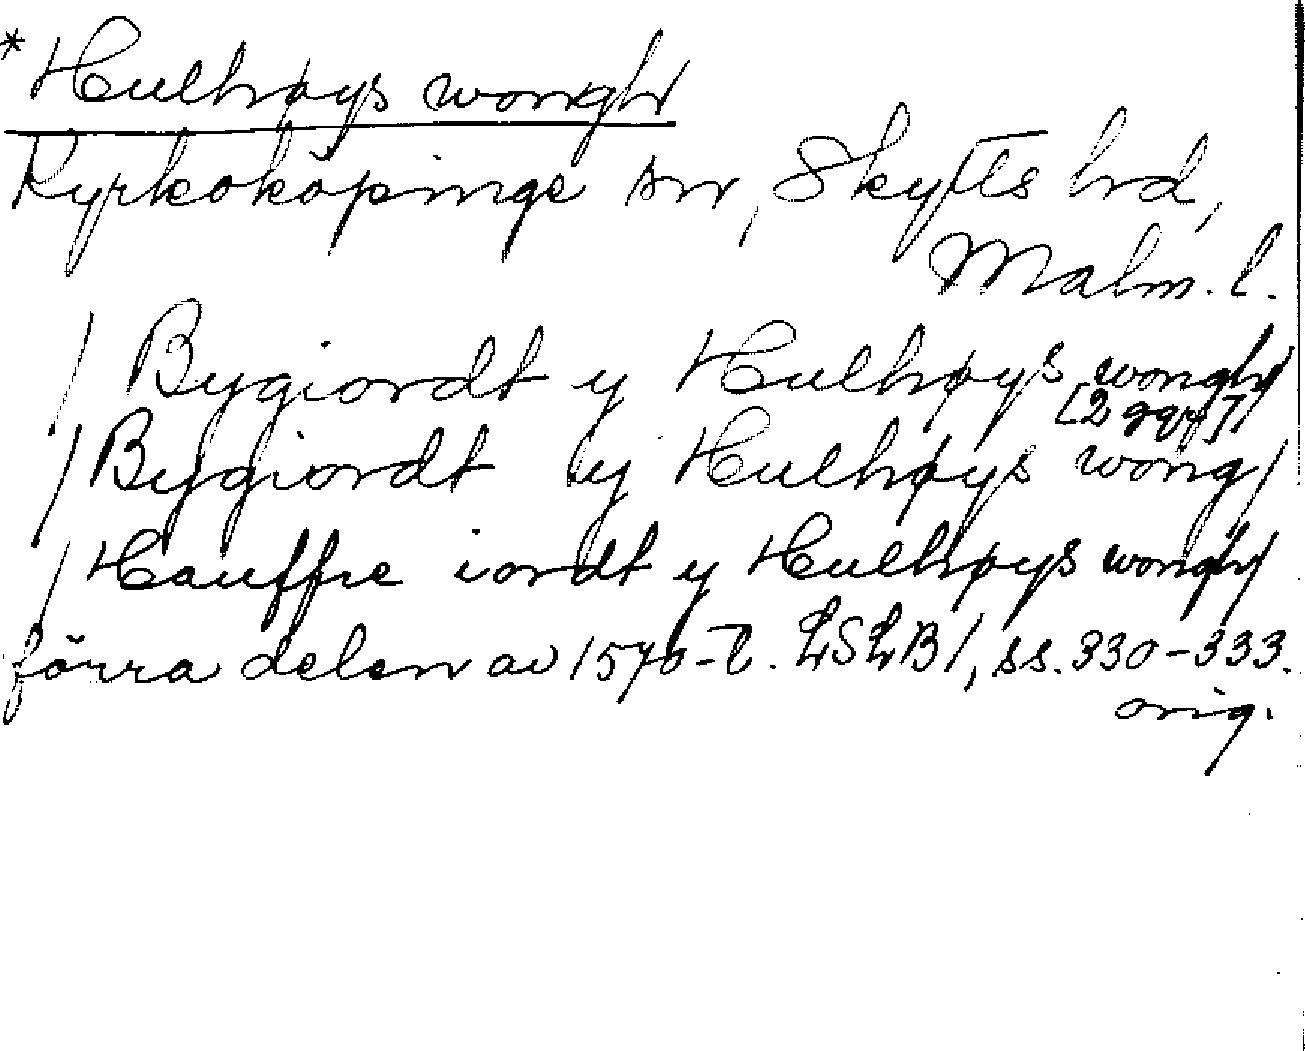 *Hulhøys wongh
Kyrkoköpinge sn, Skytts hd,
Malm. l.
/Bygiordt y Hulhøys wongh/
[2 ggr]
/Bygiordt y Hulhøys wong/
/Hauffre iordt y Hulhøys wongh/
förra delen av 1570-t. LSLB/, ss. 330-333.
orig.